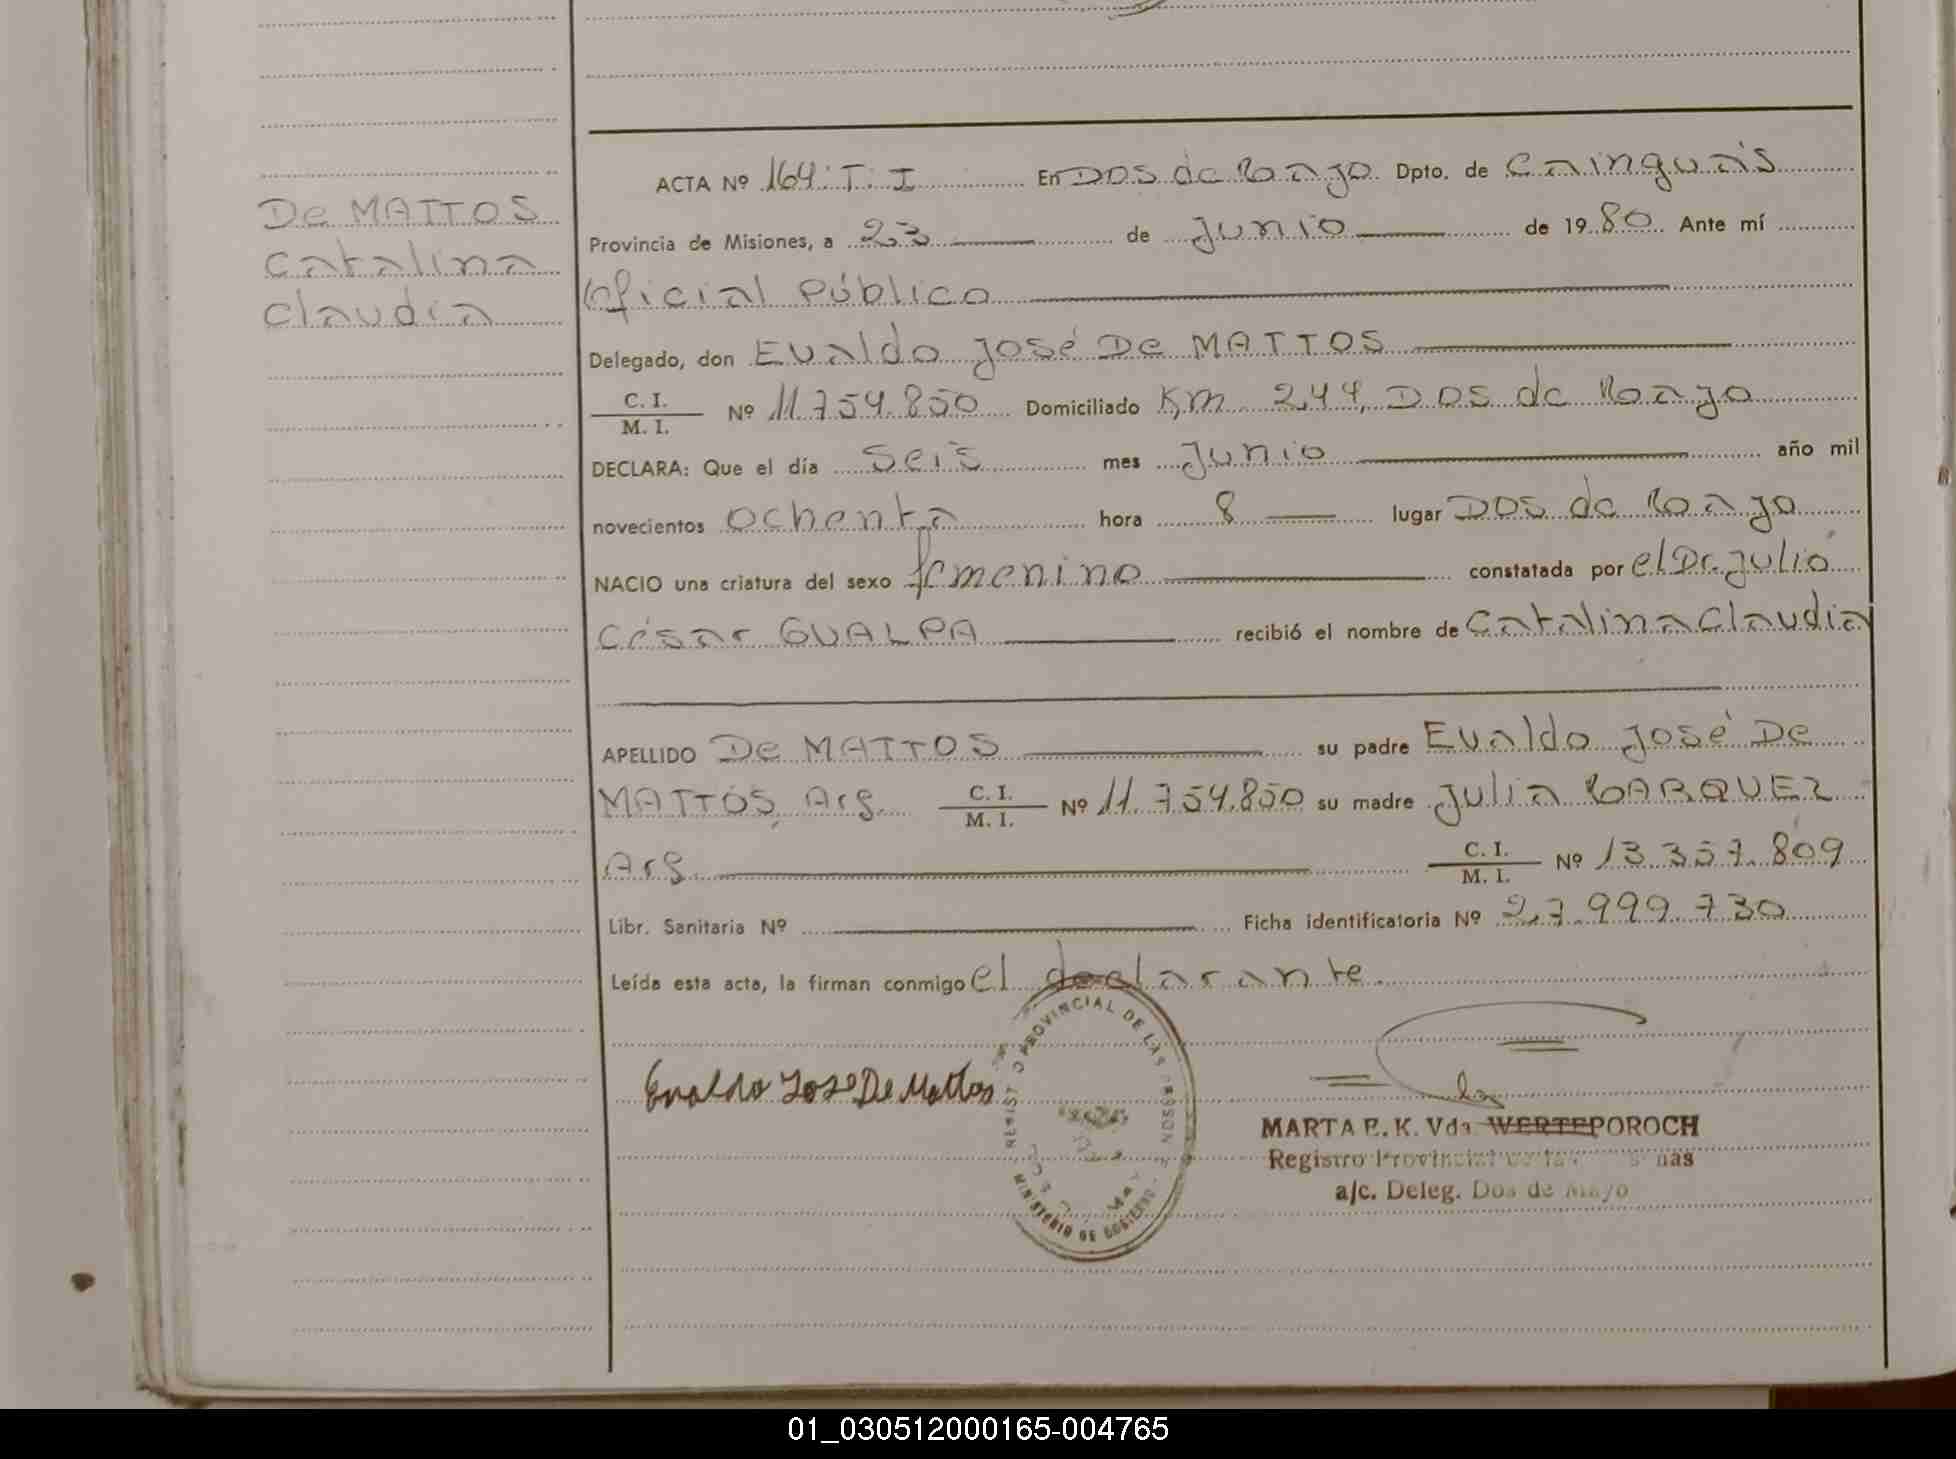 De MATTOS
Catalina
Claudia
ACTA Nº 164: T: I En DOS de Mayo Dpto. de Cainguás
Provincia de Misiones, a 23 de Junio de 1980 Ante mí
Oficial Público
Delegado, don Evaldo José De MATTOS
C. I.
M. I. Nº 11.754.850 Domiciliado Km 244, DOS de Mayo
DECLARA: Que el día seis mes Junio año mil
novecientos ochenta hora 8 lugar DOS de Mayo
NACIO una criatura del sexo femenino constatada por el Dr. Julio
César GUALPA recibió el nombre de Catalina Claudia
APELLIDO De MATTOS su padre Evaldo José De
MATTOS, Arg. C. I.
M. I. Nº 11.754.850 su madre Julia MARQUEZ
Arg. C. I.
M. I. Nº 13.357.809
Libr. Sanitaria Nº Ficha identificatoria Nº 27.999.730
Leída esta acta, la firman conmigo el declarante.
Evaldo Jose De Mattos
PROVINCIAL DE LAS
MINISTERIO DE GOBIERNO
MARTA E. K. Vda. WERTEPOROCH
Registro Provincial de las
a/c. Deleg. Dos de Mayo
01_030512000165-004765